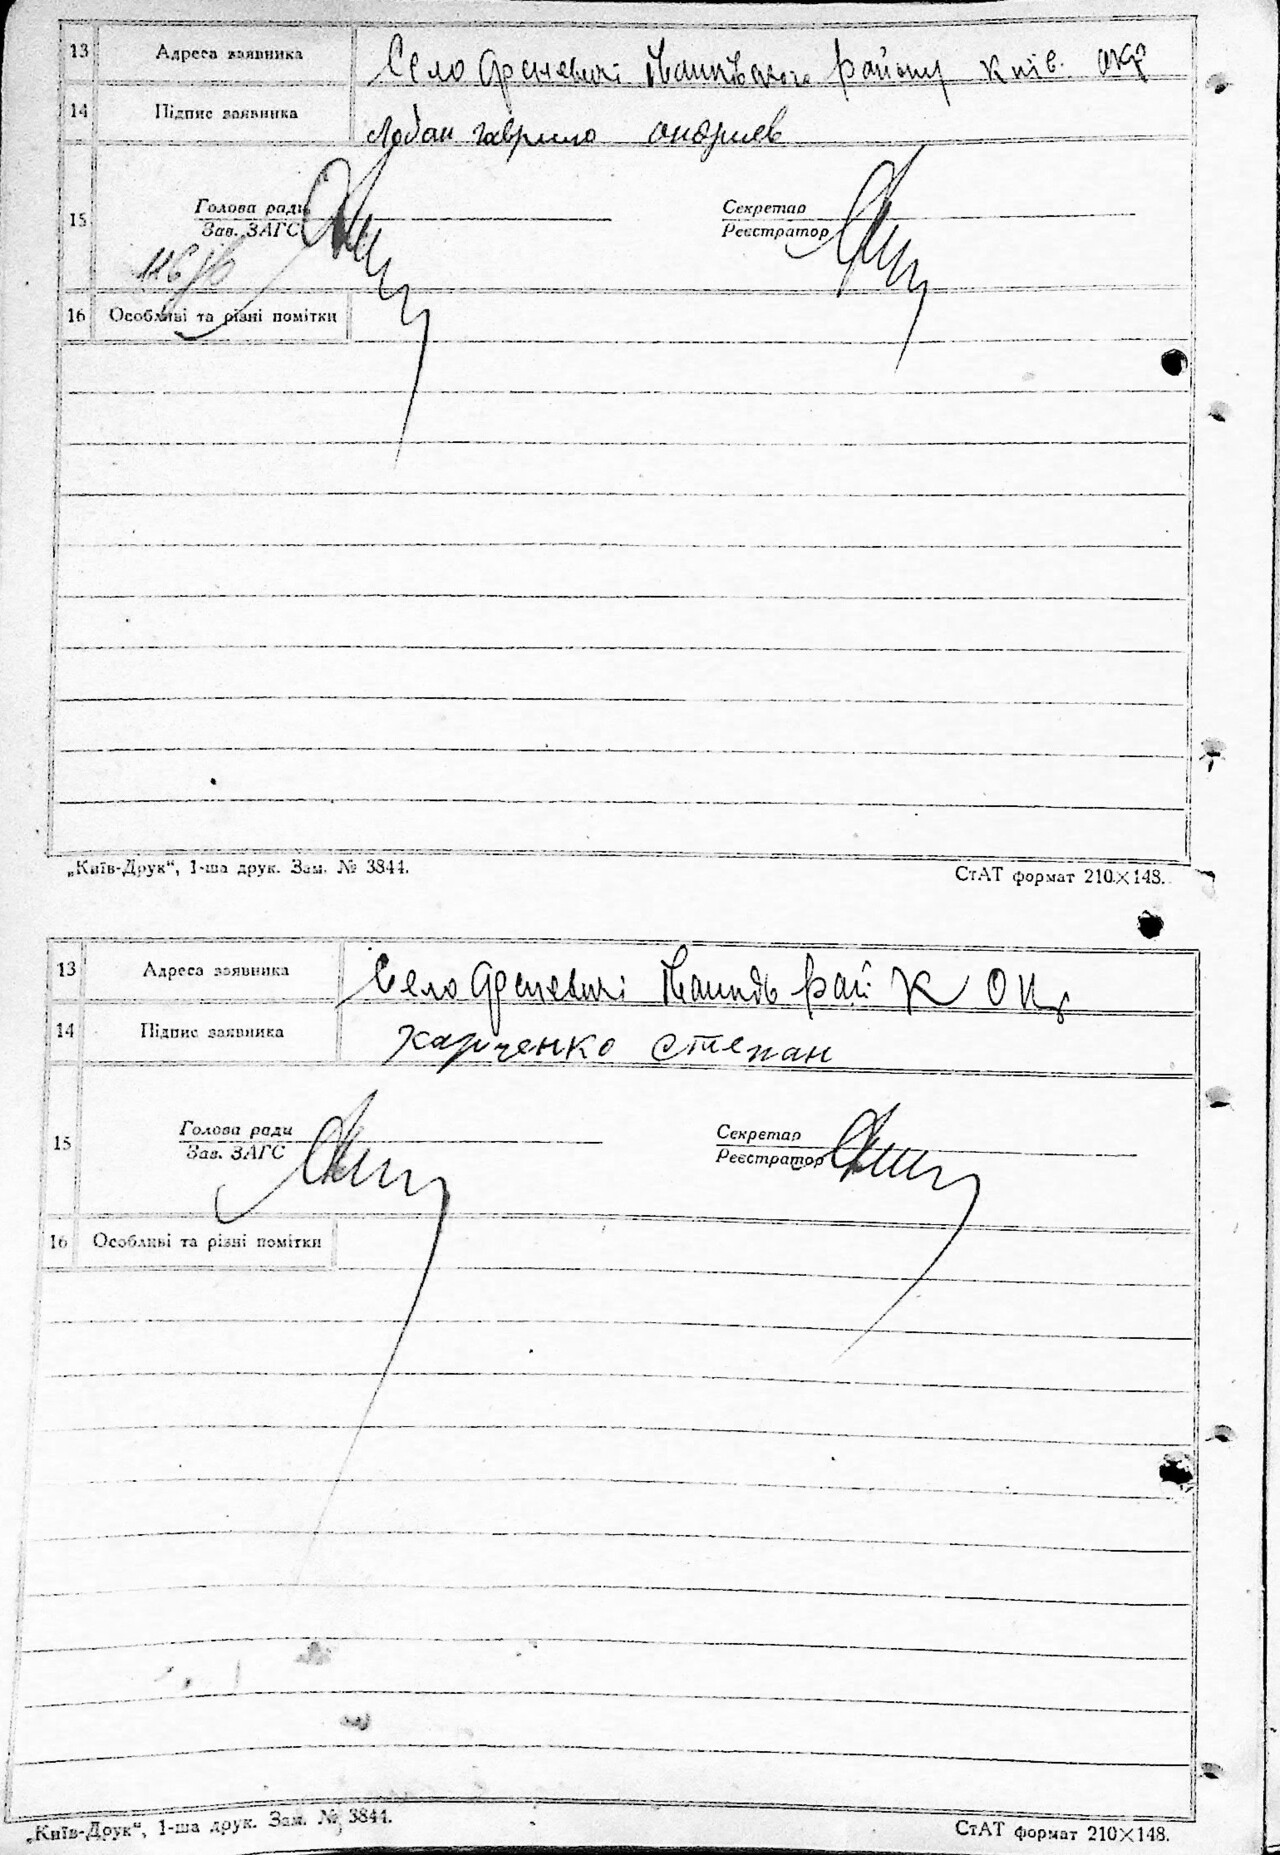 13 Адреса заявника Село Артевичі Іванківського району Київ. окр
14 Підпис заявника Лобан гаврило андриев
Голова ради Секретар
15
Зав. ЗАГС Реєстратор
16 Особливі та різні помітки
„Київ-Друк“, 1-ша друк. Зам. № 3844. СтАТ формат 210×148.
13 Адреса заявника Село Іванків рай К Окр
14 Підпис заявника Харченко степан
Голова ради Секретар
15
Зав. ЗАГС Реєстратор
16 Особливі та різні помітки
„Київ-Друк“, 1-ша друк. Зам. № 3844. СтАТ формат 210×148.